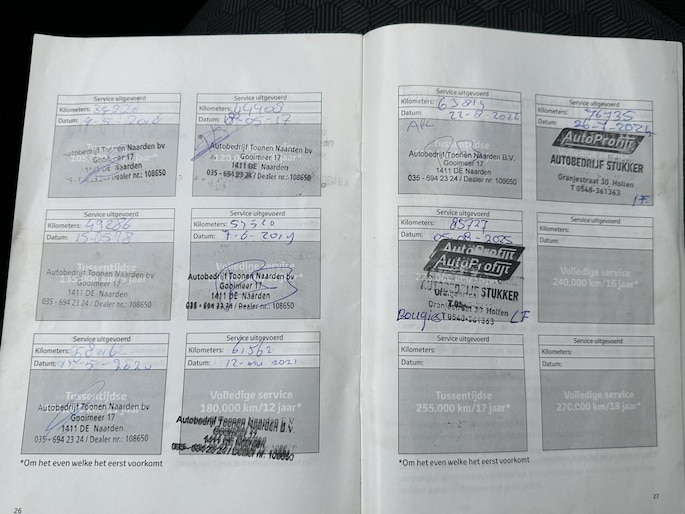 Service uitgevoerd
Kilometers:
Datum: 9-5-2016
Autobedrijf Toonen Naarden bv
Gooimeer 17
1411 DE Naarden
035 - 694 23 24 / Dealer nr.: 108650
Service uitgevoerd
Kilometers: 44408
Datum: 18-05-17
Autobedrijf Toonen Naarden bv
Gooimeer 17
1411 DE Naarden
035 - 694 23 24 / Dealer nr.: 108650
Service uitgevoerd
Kilometers: 49286
Datum: 15/05/18
Tussentijdse
Autobedrijf Toonen Naarden bv
Gooimeer 17
1411 DE Naarden
035 - 694 23 24 / Dealer nr.: 108650
Service uitgevoerd
Kilometers:
Datum: 7-6-2019
Volledige service
Autobedrijf Toonen Naarden bv
Gooimeer 17
1411 DE Naarden
035 - 694 23 24 / Dealer nr.: 108650
Service uitgevoerd
Kilometers:
Datum: 5-2020
Tussentijdse
Autobedrijf Toonen Naarden bv
Gooimeer 17
1411 DE Naarden
035 - 694 23 24 / Dealer nr.: 108650
Service uitgevoerd
Kilometers: 61562
Datum: 12-mei 2021
Volledige service
180,000 km/12 jaar*
Autobedrijf Toonen Naarden B.V.
Gooimeer 17
1411 DE Naarden
035 - 694 23 24 / Dealer nr. 108650
*Om het even welke het eerst voorkomt
26
Service uitgevoerd
Kilometers: 63814
Datum: 22-8-2022
Tussentijdse
Autobedrijf Toonen Naarden B.V.
Gooimeer 17
1411 DE Naarden
035 - 694 23 24 / Dealer nr.: 108650
Service uitgevoerd
Kilometers: 76735
Datum: 2024
AutoProfijt
AUTOBEDRIJF STUKKER
Oranjestraat 30, Holten
T 0548-361363
LF
Service uitgevoerd
Kilometers: 85727
Datum: 05-08-2025
AutoProfijt
AutoProfijt
AUTOBEDRIJF STUKKER
Oranjestraat 30 Holten
Bougies T 0548-361363 LF
Service uitgevoerd
Kilometers:
Datum:
Volledige service
240,000 km/16 jaar*
Service uitgevoerd
Kilometers:
Datum:
Tussentijdse
255,000 km/17 jaar*
Service uitgevoerd
Kilometers:
Datum:
Volledige service
270,000 km/18 jaar*
*Om het even welke het eerst voorkomt
27